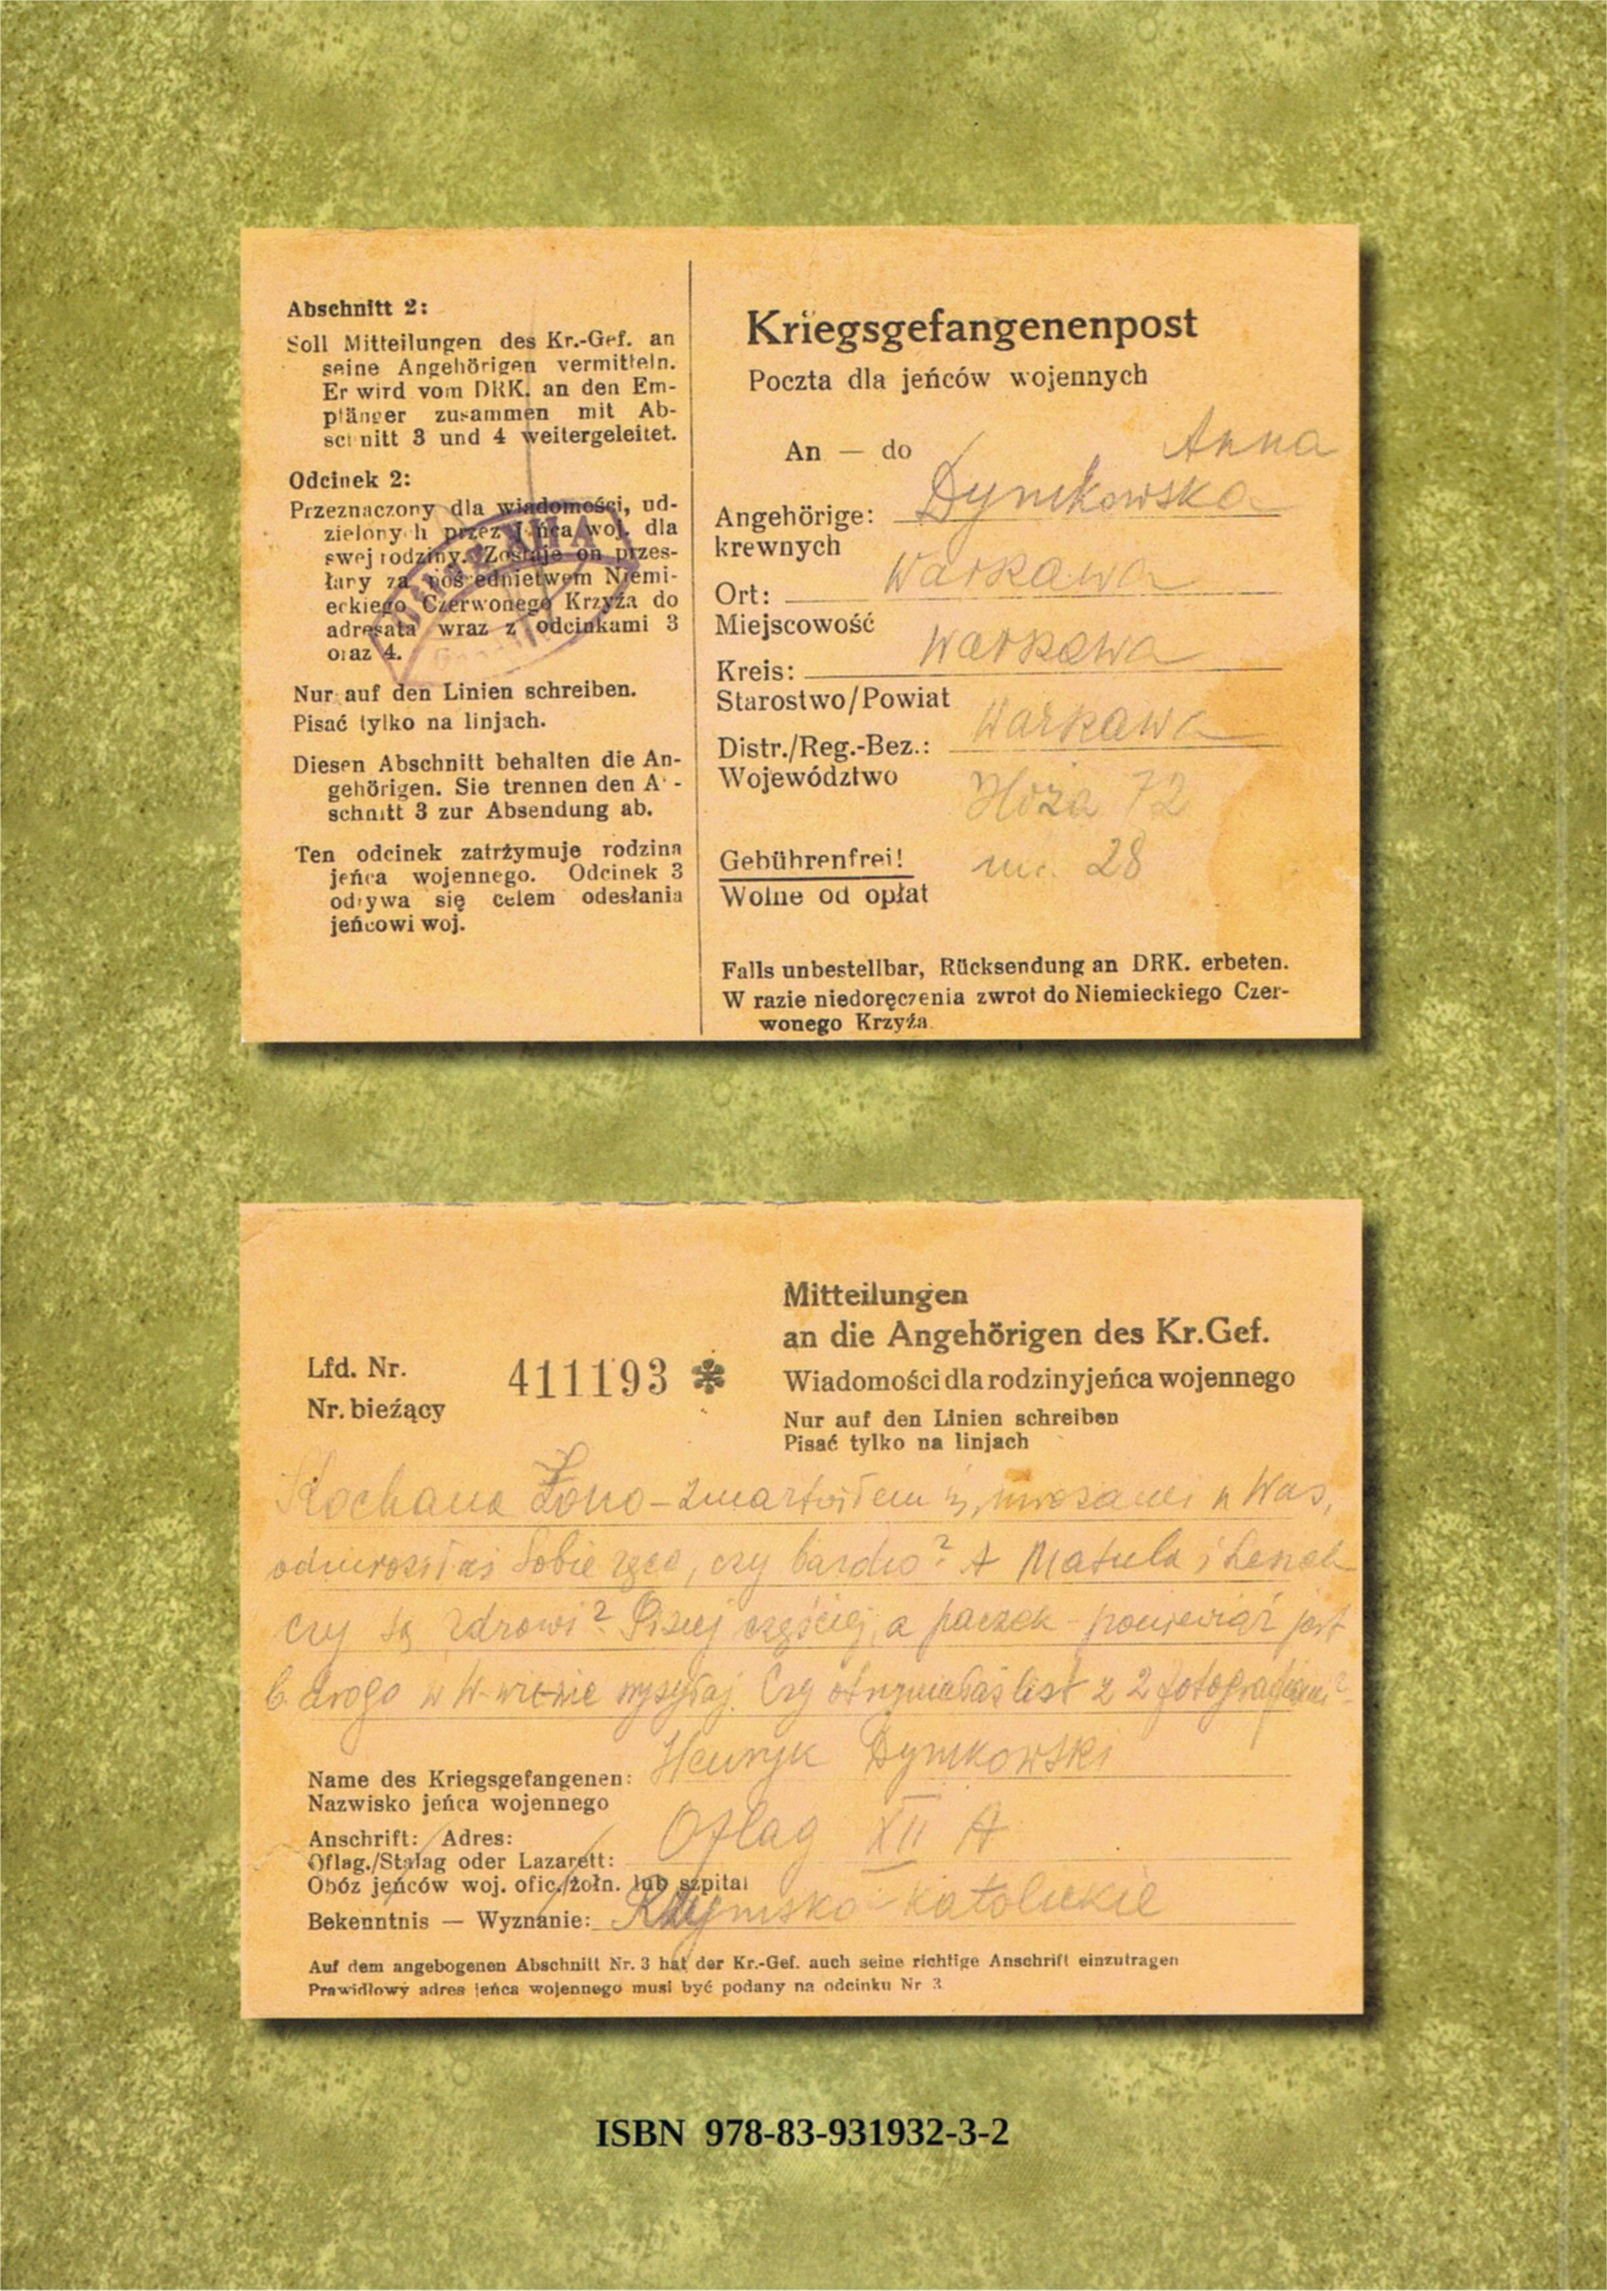 Abschnitt 2:
Soll Mitteilungen des Kr.-Gef. an
seine Angehörigen vermitteln.
Er wird vom DRK. an den Em-
pfänger zusammen mit Ab-
schnitt 3 und 4 weitergeleitet.
Odcinek 2:
Przeznaczony dla wiadomości, ud-
zielonych przez jeńca woj. dla
swej rodziny. Zostaje on przes-
łany za pośrednietwem Niemi-
eckiego Czerwonego Krzyża do
adresata wraz z odcinkami 3
oraz 4.
Nur auf den Linien schreiben.
Pisać tylko na linjach.
Diesen Abschnitt behalten die An-
gehörigen. Sie trennen den A -
schnitt 3 zur Absendung ab.
Ten odcinek zatrżymuje rodzina
jeńca wojennego. Odcinek 3
odrywa się celem odesłania
jeńcowi woj.
Kriegsgefangenenpost
Poczta dla jeńców wojennych
An — do Anna
Angehörige: Dymkowska
krewnych
Ort: Warszawa
Miejscowość
Kreis: Warszawa
Starostwo/Powiat
Distr./Reg.-Bez.: Warszawa
Województwo
Hoża 72
Gebührenfrei! m. 28
Wolne od opłat
Falls unbestellbar, Rücksendung an DRK. erbeten.
W razie niedoręczenia zwrot do Niemieckiego Czer-
wonego Krzyźa.
Mitteilungen
an die Angehörigen des Kr.Gef.
Lfd. Nr. 411193
Wiadomości dla rodziny jeńca wojennego
Nr. bieźący
Nur auf den Linien schreiben
Pisać tylko na linjach
Kochana Żono – zmartwiłem się mrozami u Was,
odmroziłaś sobie ręce, czy bardzo? A Matula i Leszek
czy są zdrowi? Pisuj częściej, a paczek – ponieważ jest
b. drogo w W-wie nie wysyłaj. Czy otrzymałaś list z 2 fotografiami?
Name des Kriegsgefangenen: Henryk Dymkowski
Nazwisko jeńca wojennego
Anschrift: Adres:
Oflag./Stalag oder Lazarett: Oflag XII A
Obóz jeńców woj. ofic./żołn. lub szpital
Bekenntnis — Wyznanie: Rzymsko-katolickie
Auf dem angebogenen Abschnitt Nr. 3 hat der Kr.-Gef. auch seine richtige Anschrift einzutragen
Prawidłowy adres jeńca wojennego musi być podany na odcinku Nr 3
ISBN 978-83-931932-3-2